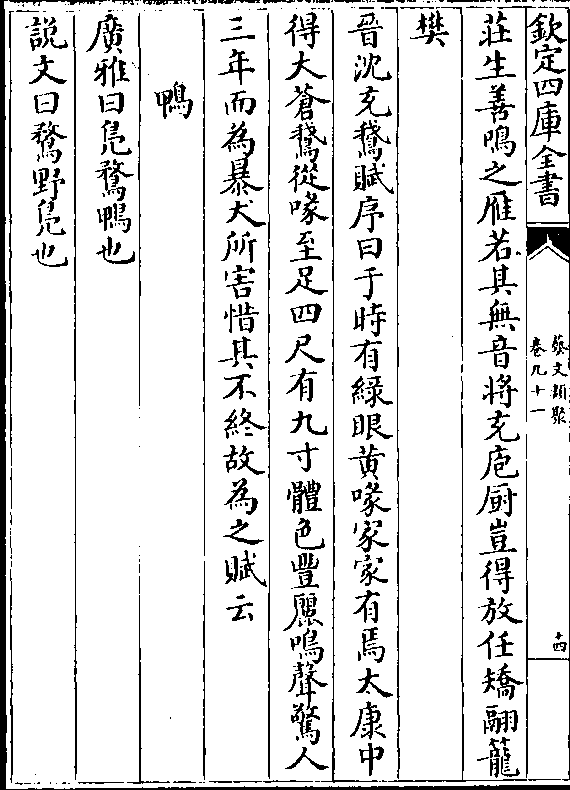 欽定四庫全書
藝文類聚
卷九十一
十四
莊生善鳴之雁若其無音將充庖厨豈得放任矯翮籠
樊
晉沈充鵞賦序曰于時有綠眼黄喙家家有焉太康中
得大蒼鵞從喙至足四尺有九寸體色豐麗鳴聲驚人
三年而為暴犬所害惜其不終故為之賦云
鴨
廣雅曰鳬鶩鴨也
説文曰鶩野鳬也